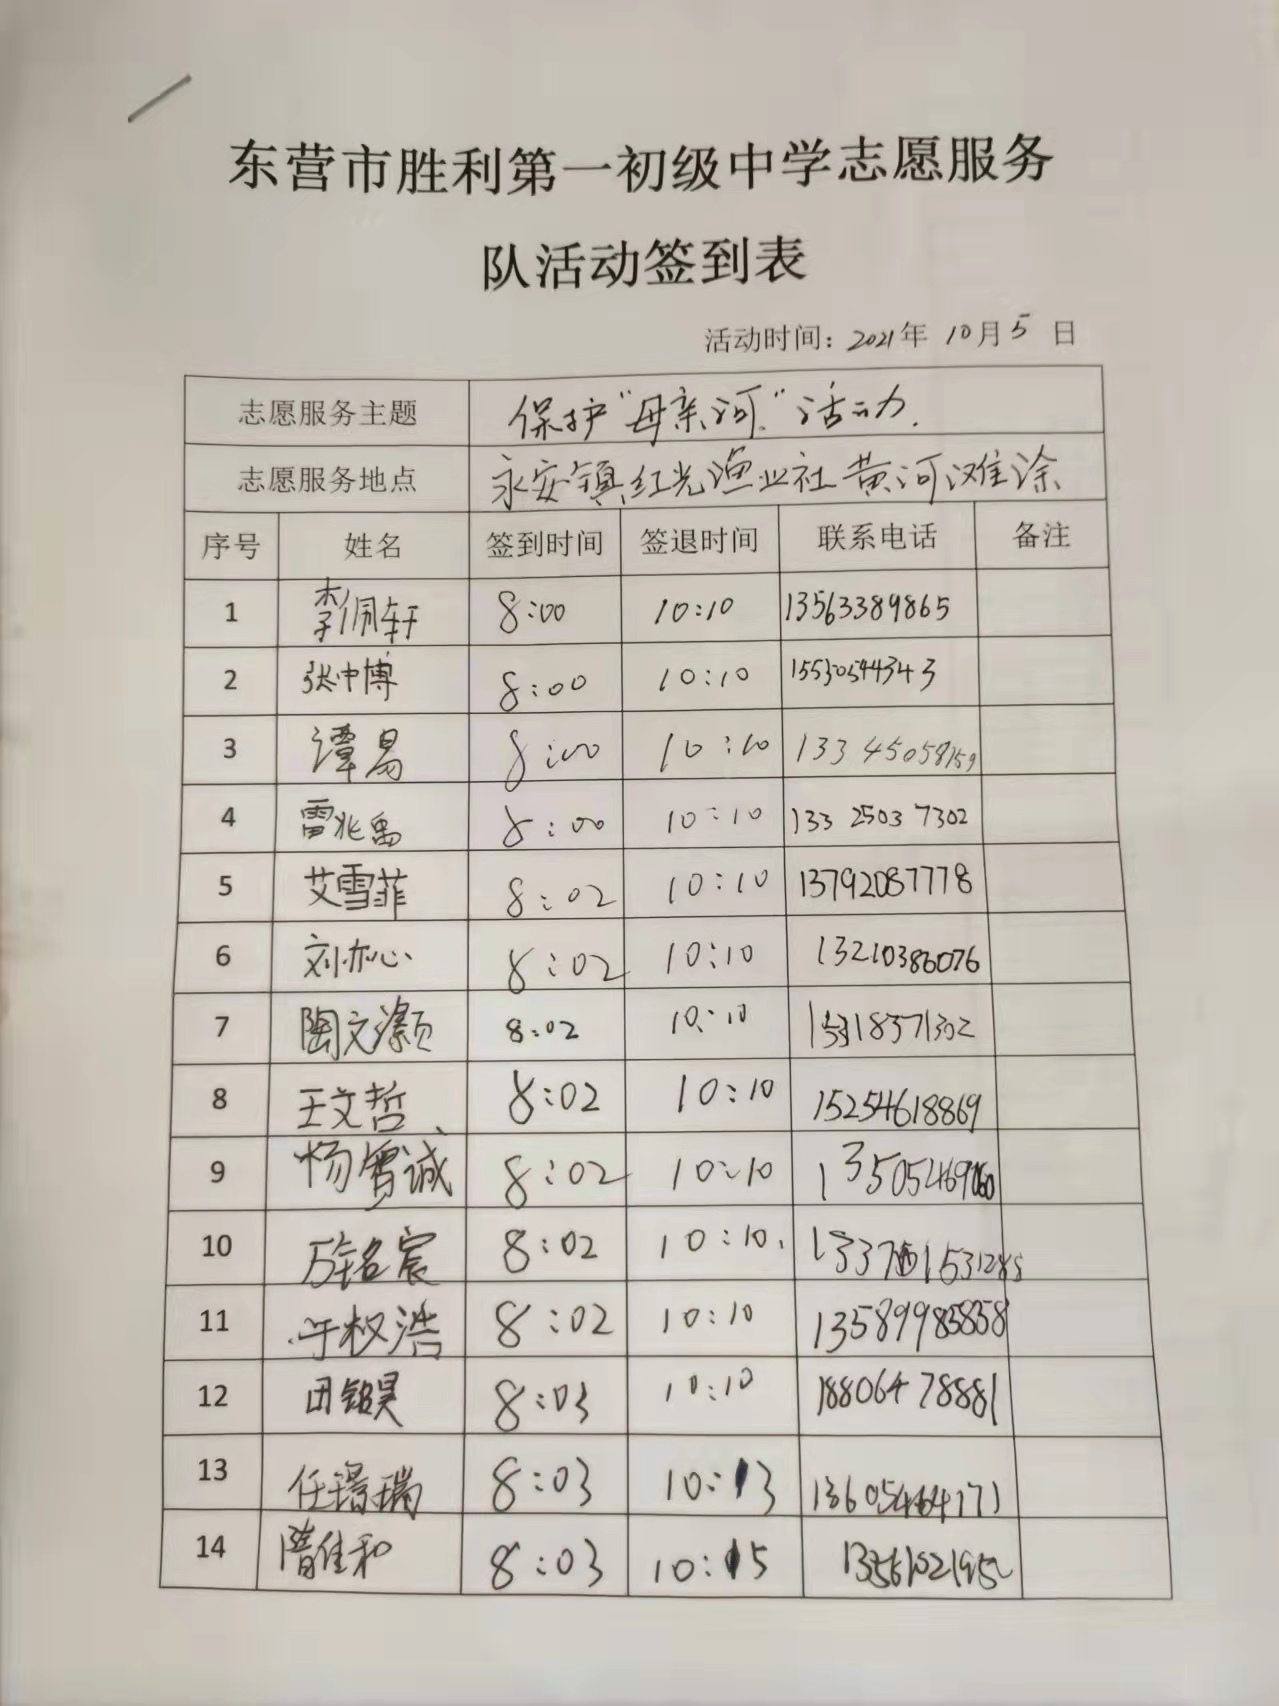 东营市胜利第一初级中学志愿服务
队活动签到表
活动时间：2021年 10月5 日
志愿服务主题 保护“母亲河”活动.
志愿服务地点 永安镇红光渔业社黄河滩涂
序号 姓名 签到时间 签退时间 联系电话 备注
1 李佩轩 8:00 10:10 13563389865
2 张中博 8:00 10:10 15530544343
3 谭易 8:00 10:10 13345058159
4 雷兆禹 8:00 10:10 133 2503 7302
5 艾雪菲 8:02 10:10 13792087778
6 刘亦心 8:02 10:10 13210386076
7 陶文灏 8:02 10:10
8 王文哲 8:02 10:10 15254618869
9 杨雪诚 8:02 10:10
10 万铭宸 8:02 10:10
11 于权浩 8:02 10:10 13589985858
12 田铭昊 8:03 10:10 18806478881
13 任璟瑞 8:03 10:13 13605464171
14 隋佳和 8:03 10:15